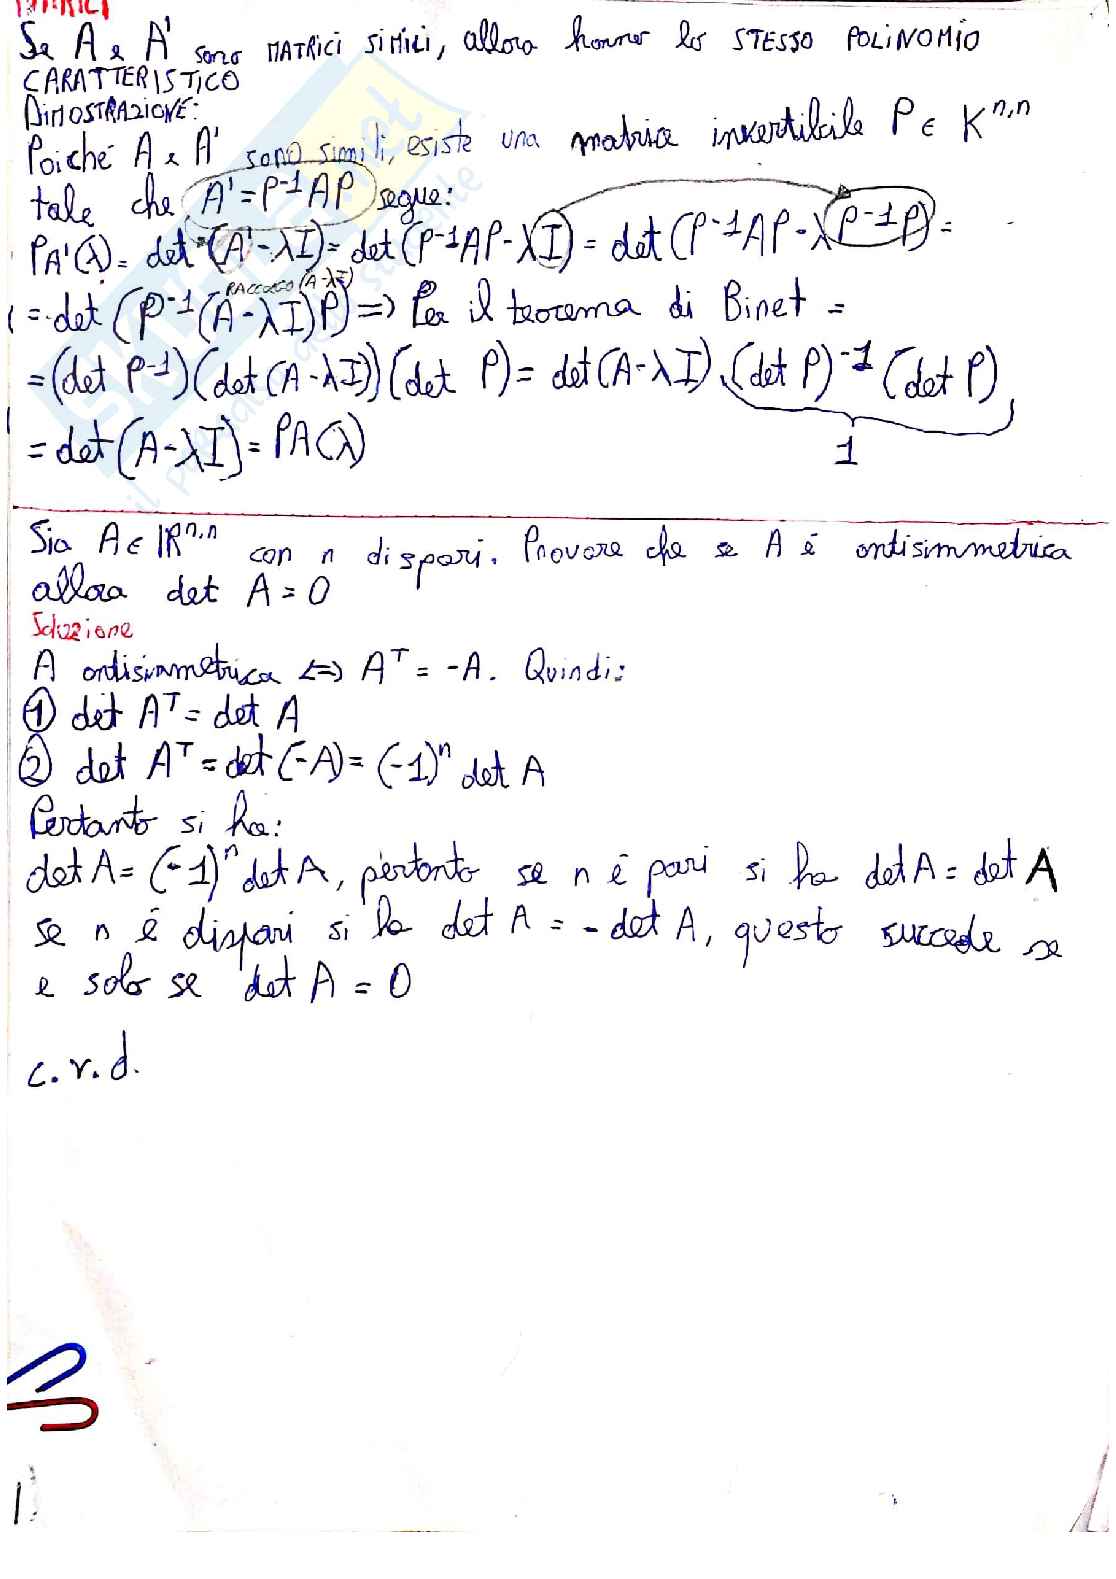 MATRICI
Se A e A' sono MATRICI SIMILI, allora hanno lo STESSO POLINOMIO
CARATTERISTICO
DIMOSTRAZIONE:
Poiché A e A' sono simili, esiste una matrice invertibile P ∈ K^n,n
tale che A' = P^-1 AP segue:
PA'(λ) = det (A'-λI) = det (P^-1 AP - λI) = det (P^-1 AP - λP^-1 P) =
RACCOLGO (A-λI)
= det (P^-1 (A-λI)P) => Per il teorema di Binet =
= (det P^-1)(det (A-λI))(det P) = det (A-λI) · (det P)^-1 (det P)
= det (A-λI) = PA(λ)
1
Sia A ∈ ℝ^n,n con n dispari. Provare che se A è antisimmetrica
allora det A = 0
Soluzione
A antisimmetrica <=> A^T = -A. Quindi:
① det A^T = det A
② det A^T = det (-A) = (-1)^n det A
Pertanto si ha:
det A = (-1)^n det A, pertanto se n è pari si ha det A = det A
se n è dispari si ha det A = - det A, questo succede se
e solo se det A = 0
c.v.d.